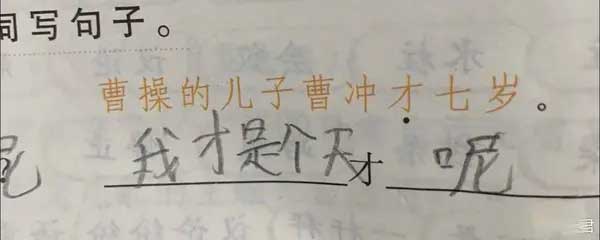 词写句子。
曹操的儿子曹冲才七岁。
呢 我才是个天才呢